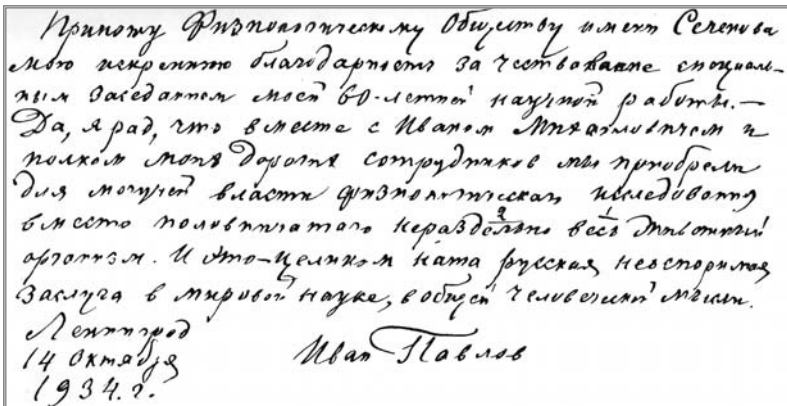 Приношу Физиологическому Обществу имени Сеченова
мою искреннюю благодарность за чествование специаль-
ным заседанием моей 60-летней научной работы. —
Да, я рад, что вместе с Иваном Михайловичем и
полком моих дорогих сотрудников мы приобрели
для могучей власти физиологическаго исследования
вместо половинчатого нераздельно весь животный
организм. И это – целиком наша русская неоспоримая
заслуга в мировой науке, в общей человеческой мысли.
Ленинград
14 Октября
1934. г.
Иван Павлов